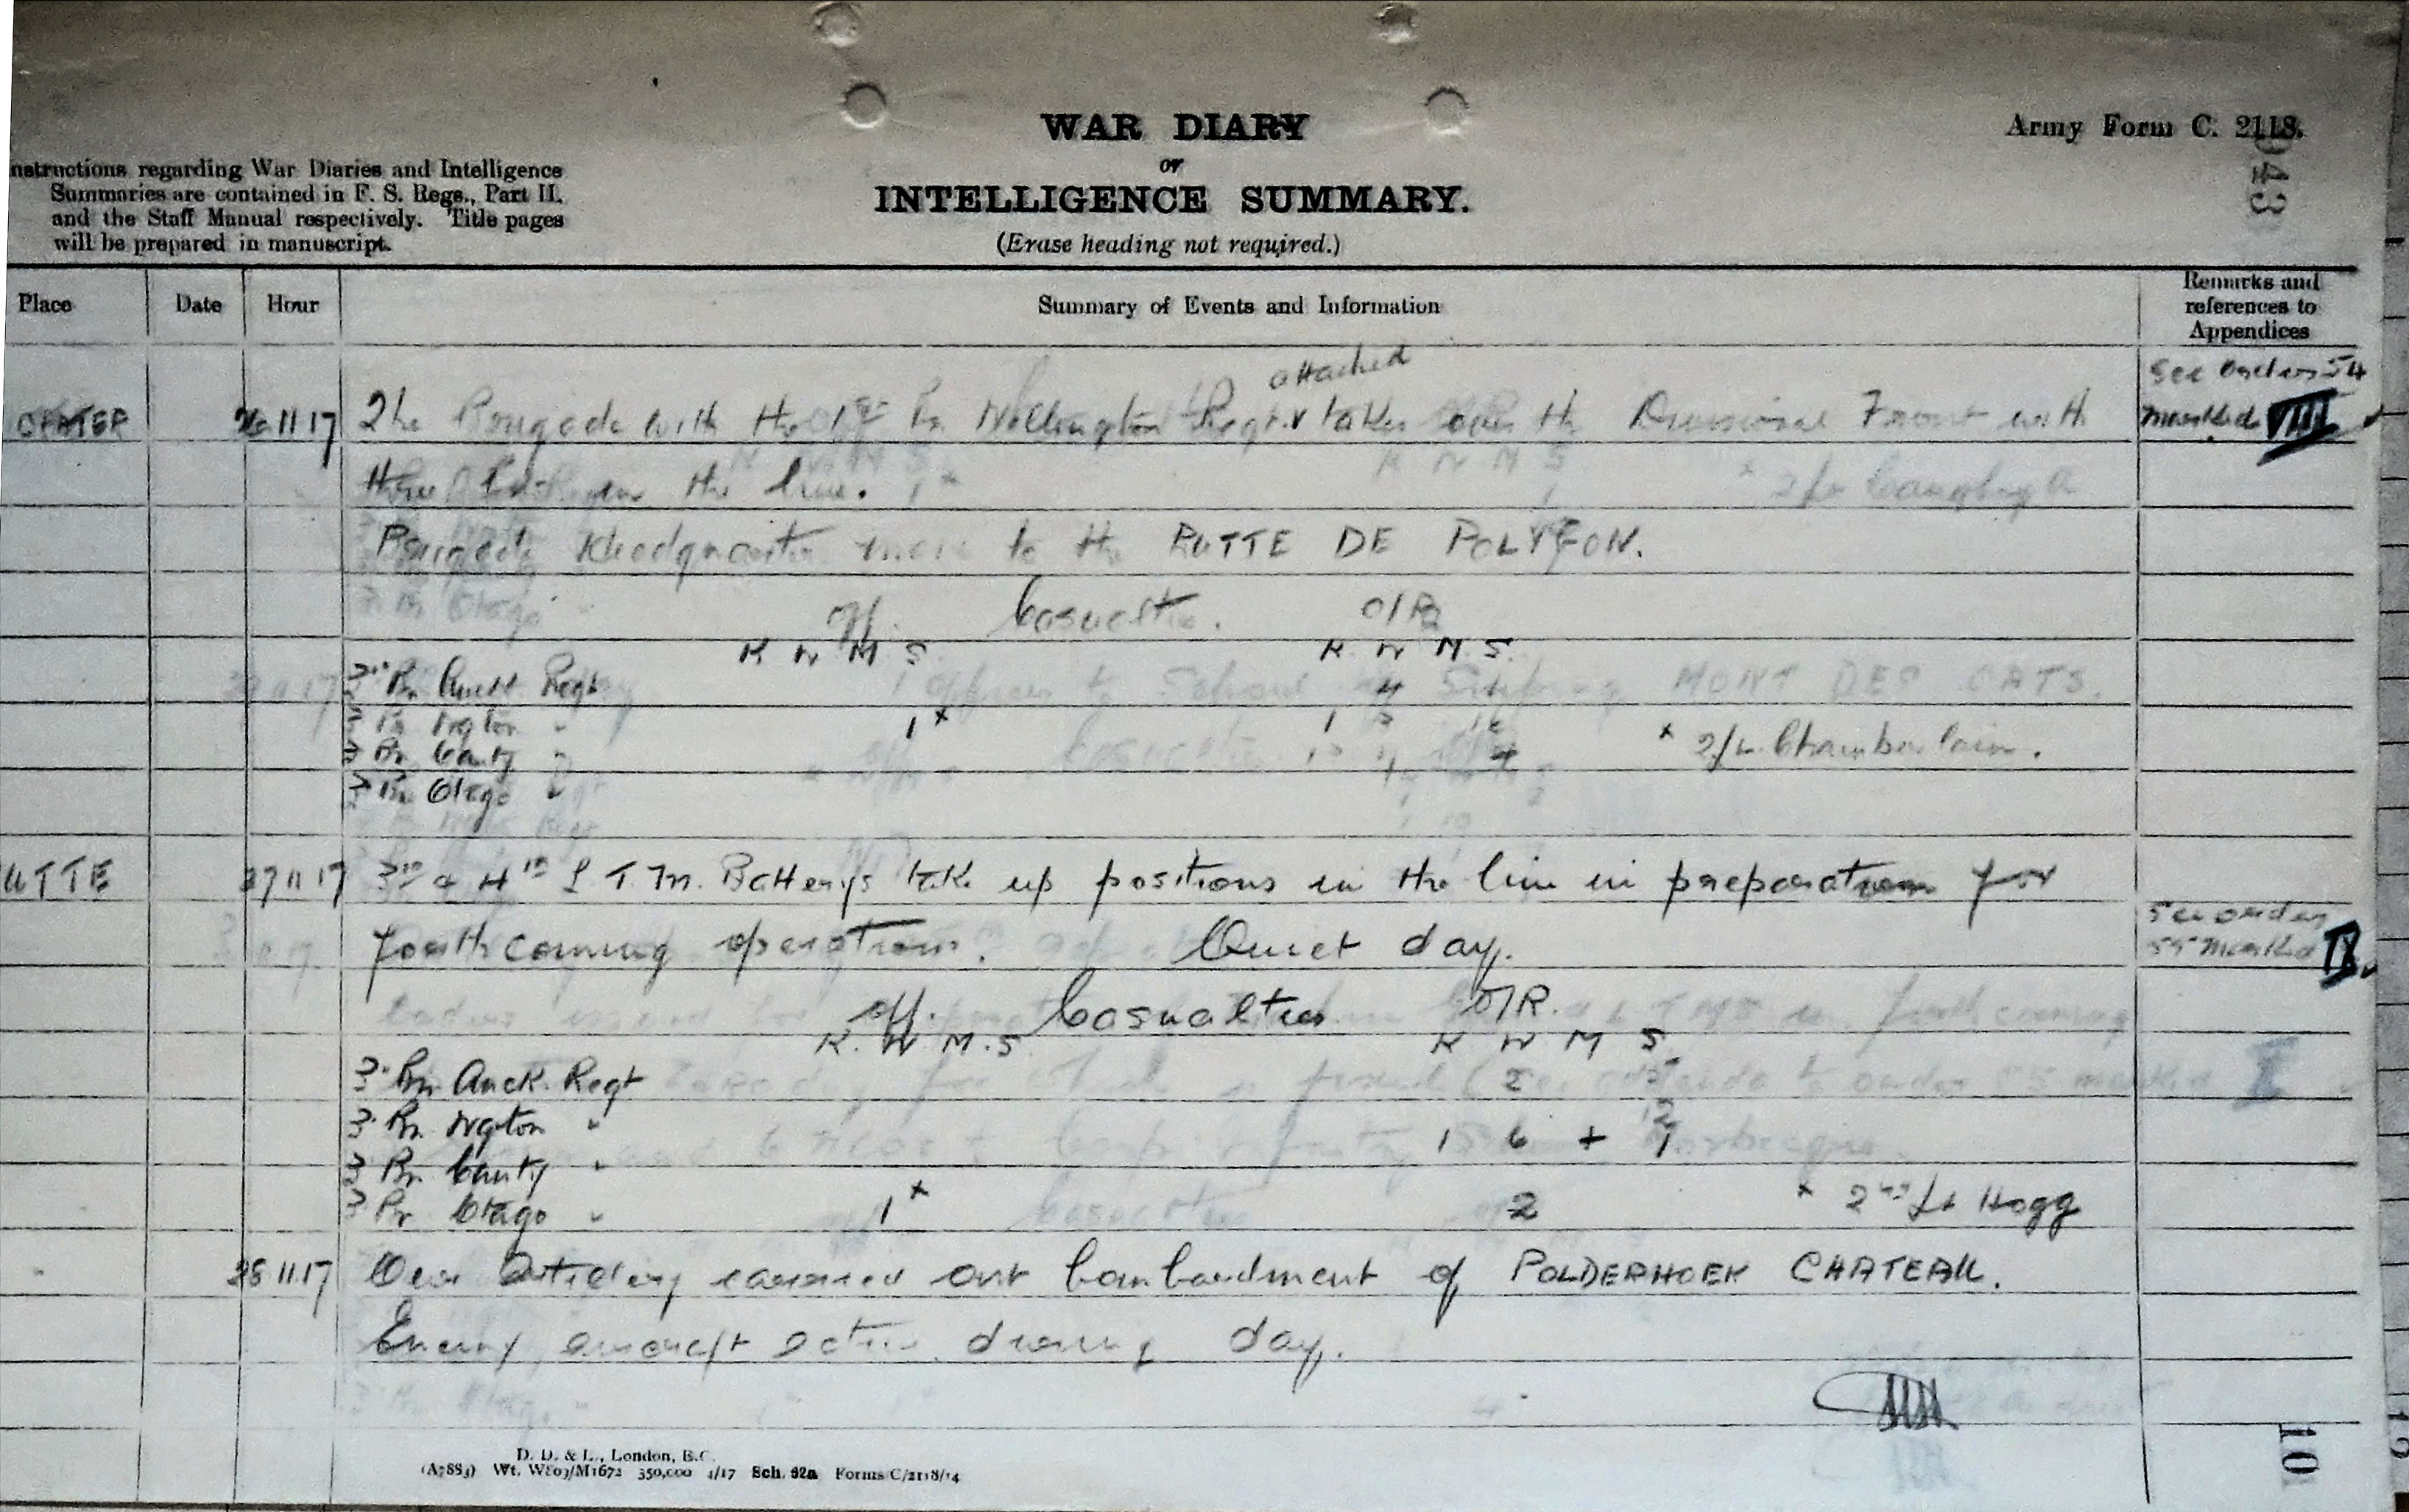 WAR DIARY
or
INTELLIGENCE SUMMARY.
(Erase heading not required.)
Army Form C. 2118.
943
nstructions regarding War Diaries and Intelligence
Summaries are contained in F. S. Regs., Part II.
and the Staff Manual respectively. Title pages
will be prepared in manuscript.
Place Date Hour Summary of Events and Information Remarks and references to Appendices
attached
26 11 17 The Brigade with the 1st Bn Wellington Regt takes over the Divisional Front with
See Orders 54
marked VIII
three Bns in the line.
Brigade Headquarters move to the BUTTE DE POLYGON.
Off. Casualties. O/R
K W M S K W M S.
3rd Bn Auck Regt 4
3 Bn Wgton " 1x 1
3 Bn Canty " 4 x 2/Lt Chamberlain.
3 Bn Otago "
UTTE 27 11 17 3rd & 4th L.T.M. Batterys take up positions in the line in preparation for
forthcoming operations. Quiet day.
See order
55 marked IX
Off. Casualties O/R.
K. W M.S K W M S
3 Bn Auck. Regt 2 5
3 Bn Wgton " 1 6 + 1
12
3 Bn Canty "
3 Bn Otago " 1x 2 x 2nd Lt Hogg
28 11 17 Our Artillery carried out bombardment of POLDERHOEK CHATEAU.
Enemy aircraft active during day.
D. D. & L., London, E.C.
(A7883) Wt. W803/M1672 350,000 4/17 Sch. 52a Forms/C/2118/14
10